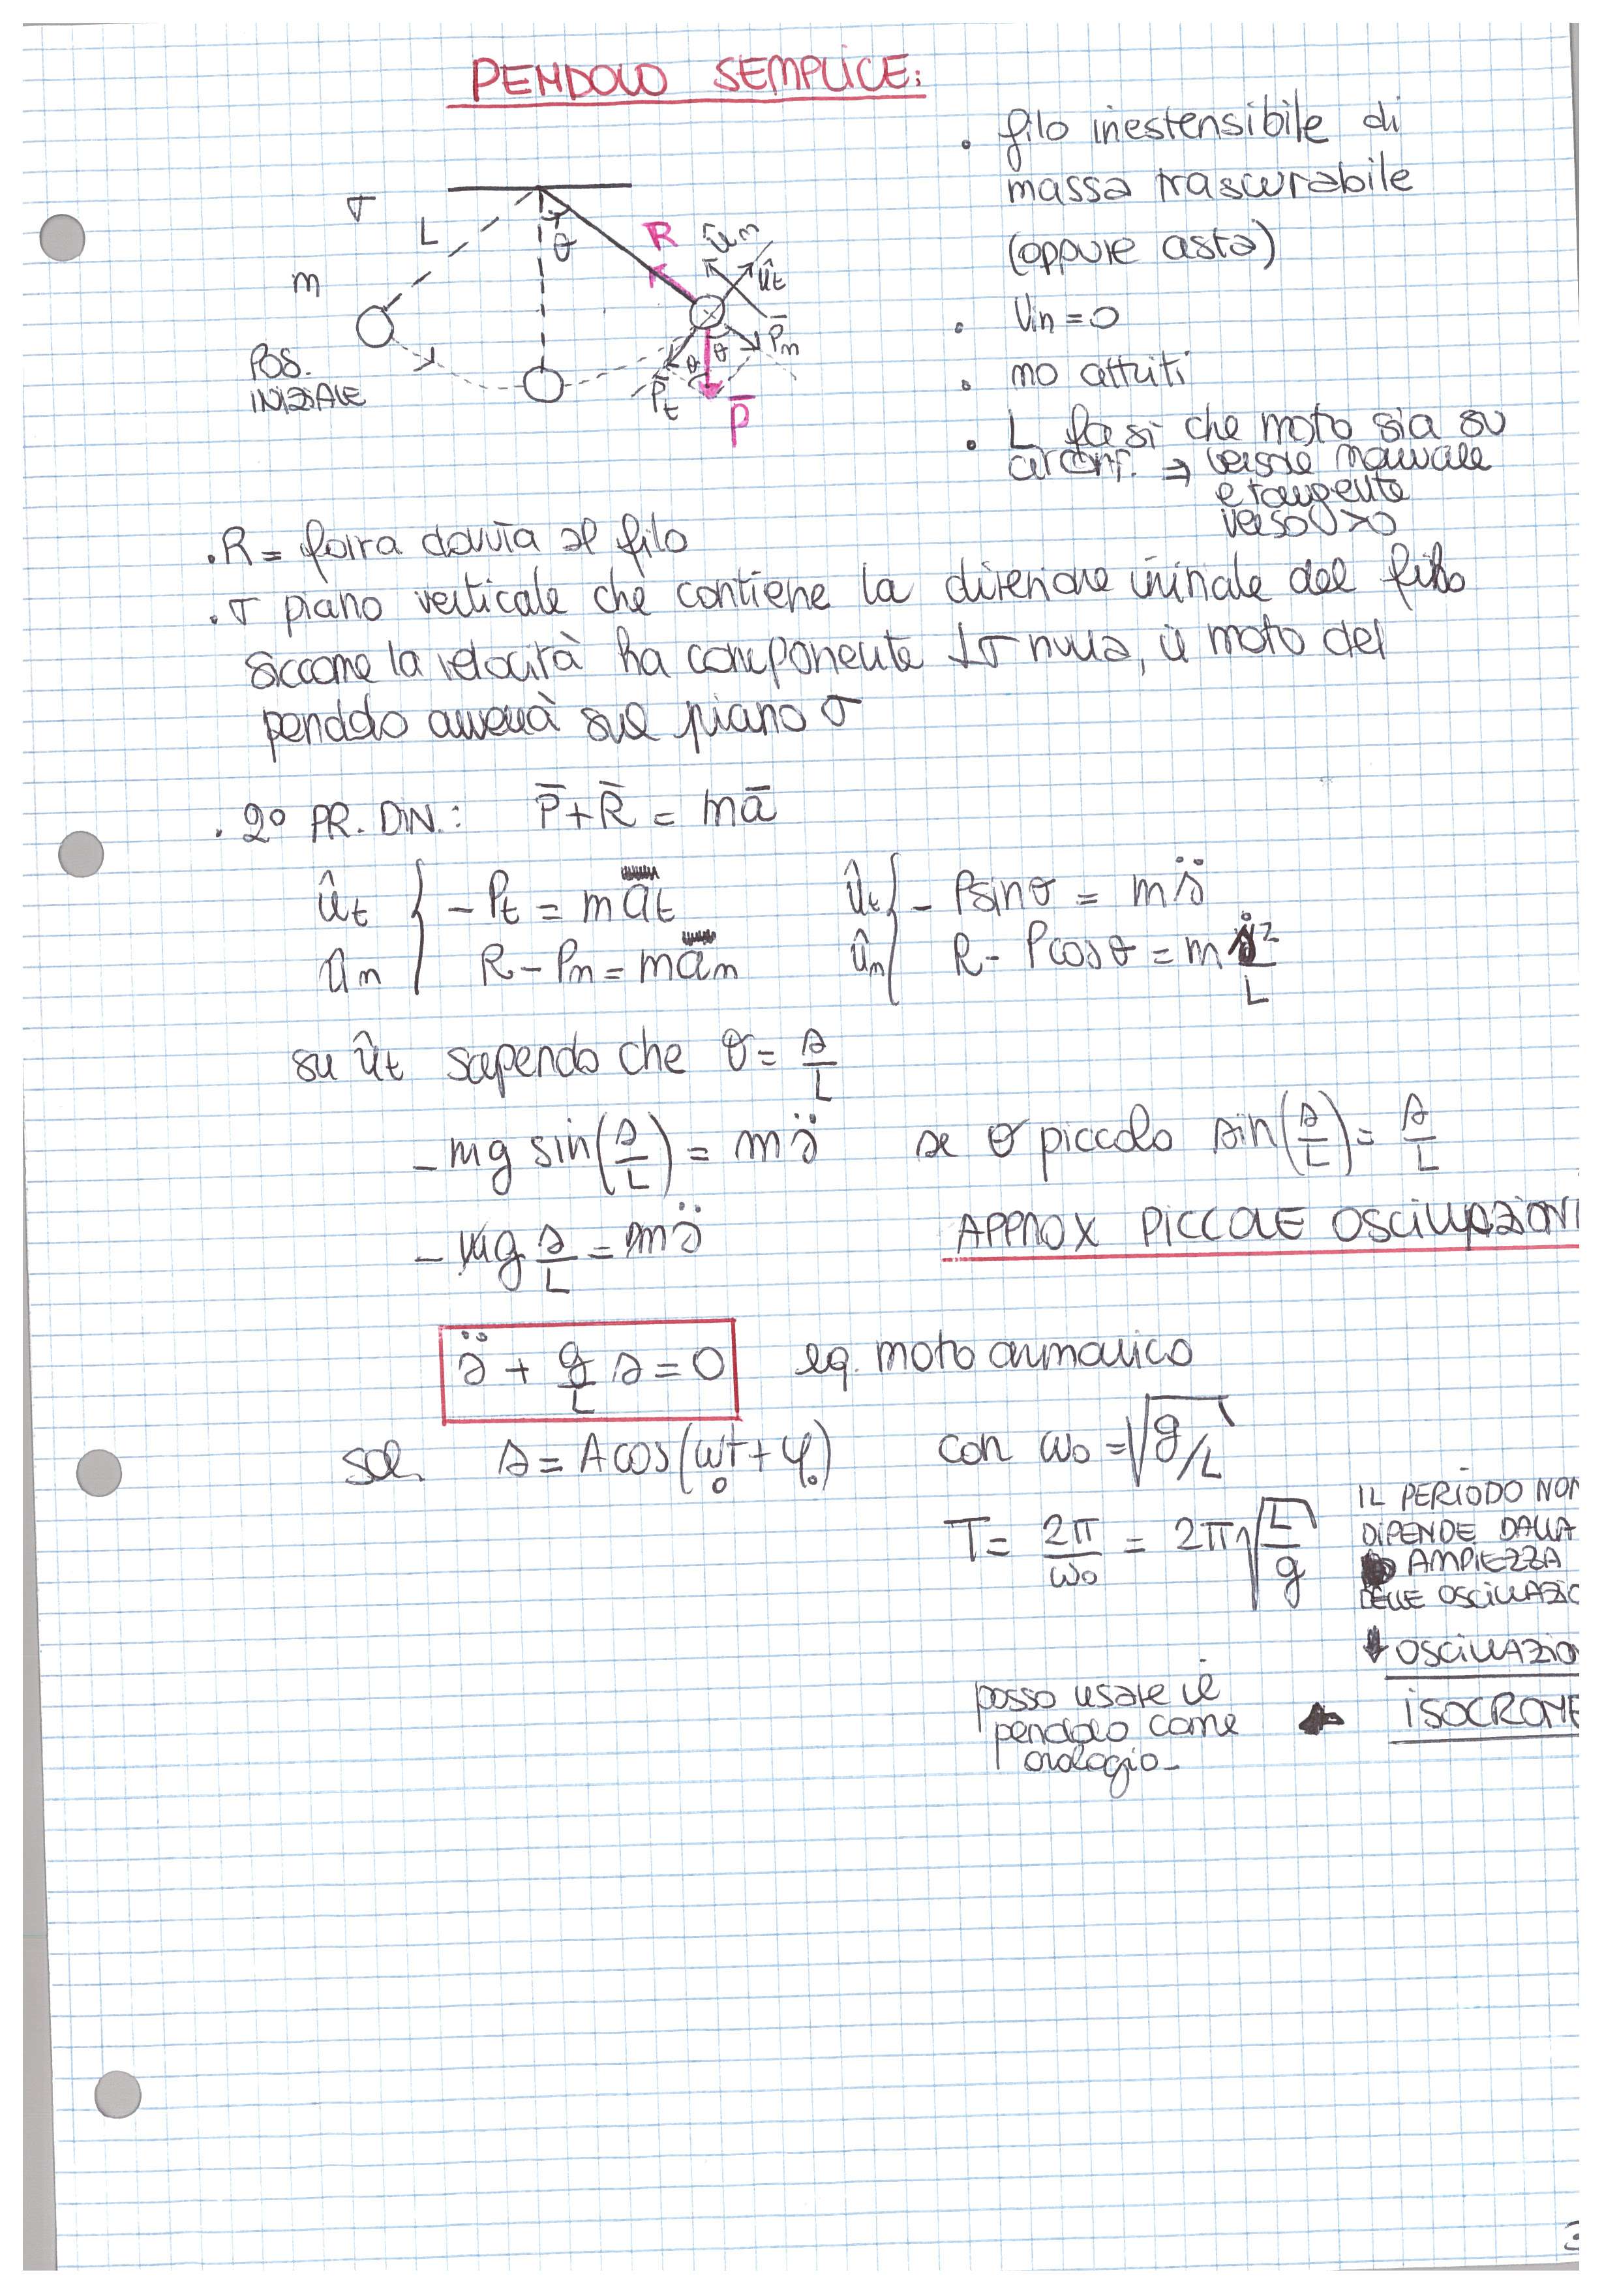 PENDOLO SEMPLICE:
• filo inestensibile di
massa trascurabile
(oppure asta)
• Vin = 0
• no attriti
• L fa sì che moto sia su
circonf. ⇒ versore normale
e tangente
verso v>0
σ
L
θ
m
POS.
INIZIALE
R
ûn
ût
P̄n
θ
θ
P̄t
P̄
• R = forza dovuta al filo
• σ piano verticale che contiene la direzione iniziale del filo
siccome la velocità ha componente ⊥σ nulla, il moto del
pendolo avverrà sul piano σ
• 2° PR. DIN.: P̄ + R̄ = mā
ût { - Pt = m at ût { - P sinθ = m s̈
ûn { R - Pn = m an ûn { R - P cosθ = m ṡ²/L
su ût sapendo che θ = s/L
- mg sin(s/L) = m s̈ se θ piccolo sin(s/L) = s/L
- mg s/L = m s̈ APPROX PICCOLE OSCILLAZIONI
s̈ + g/L s = 0 eq. moto armonico
sol. s = A cos(ω₀t + φ₀) con ω₀ = √g/L
T = 2π/ω₀ = 2π √L/g
IL PERIODO NON
DIPENDE DALLA
AMPIEZZA
DELLE OSCILLAZIO
↓ OSCILLAZION
ISOCRONE
posso usare il ←
pendolo come
orologio